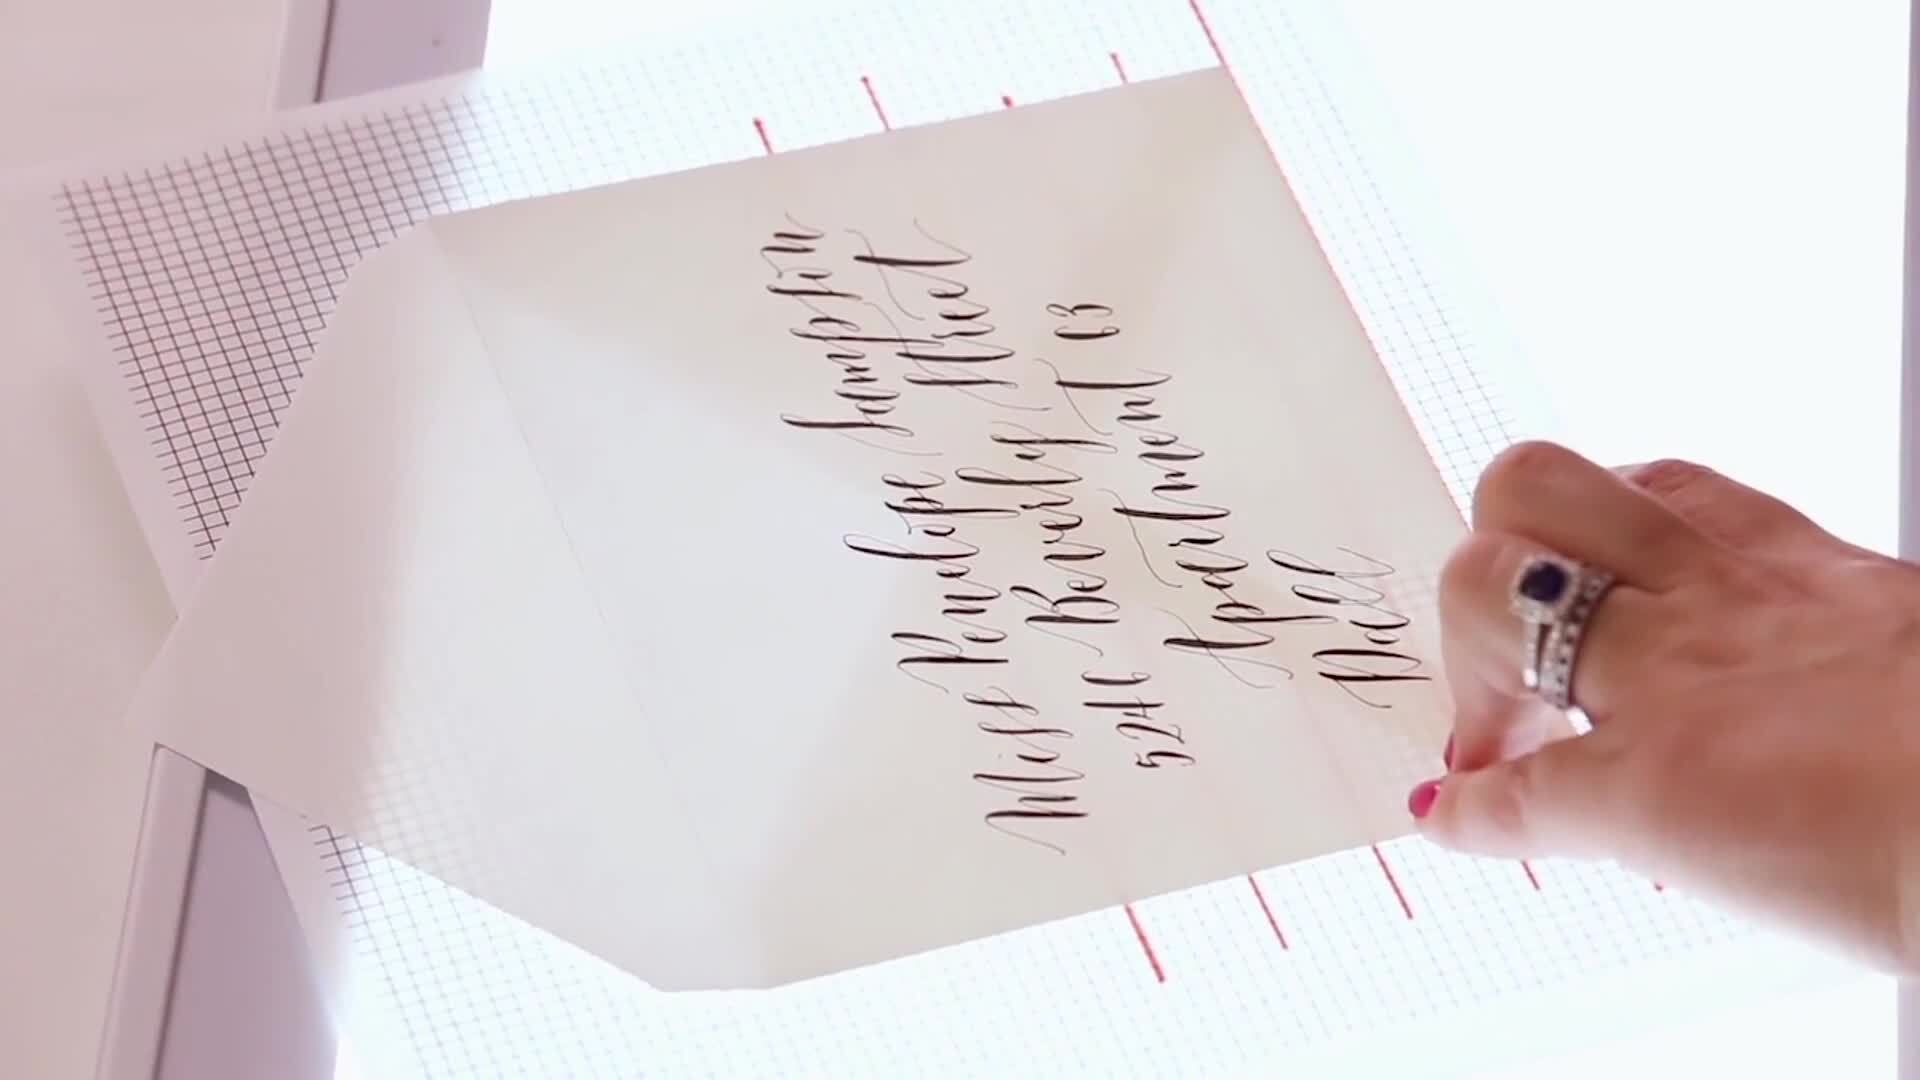 Miss Penelope Sampson
5246 Beverly Street
Apartment 63
Dall